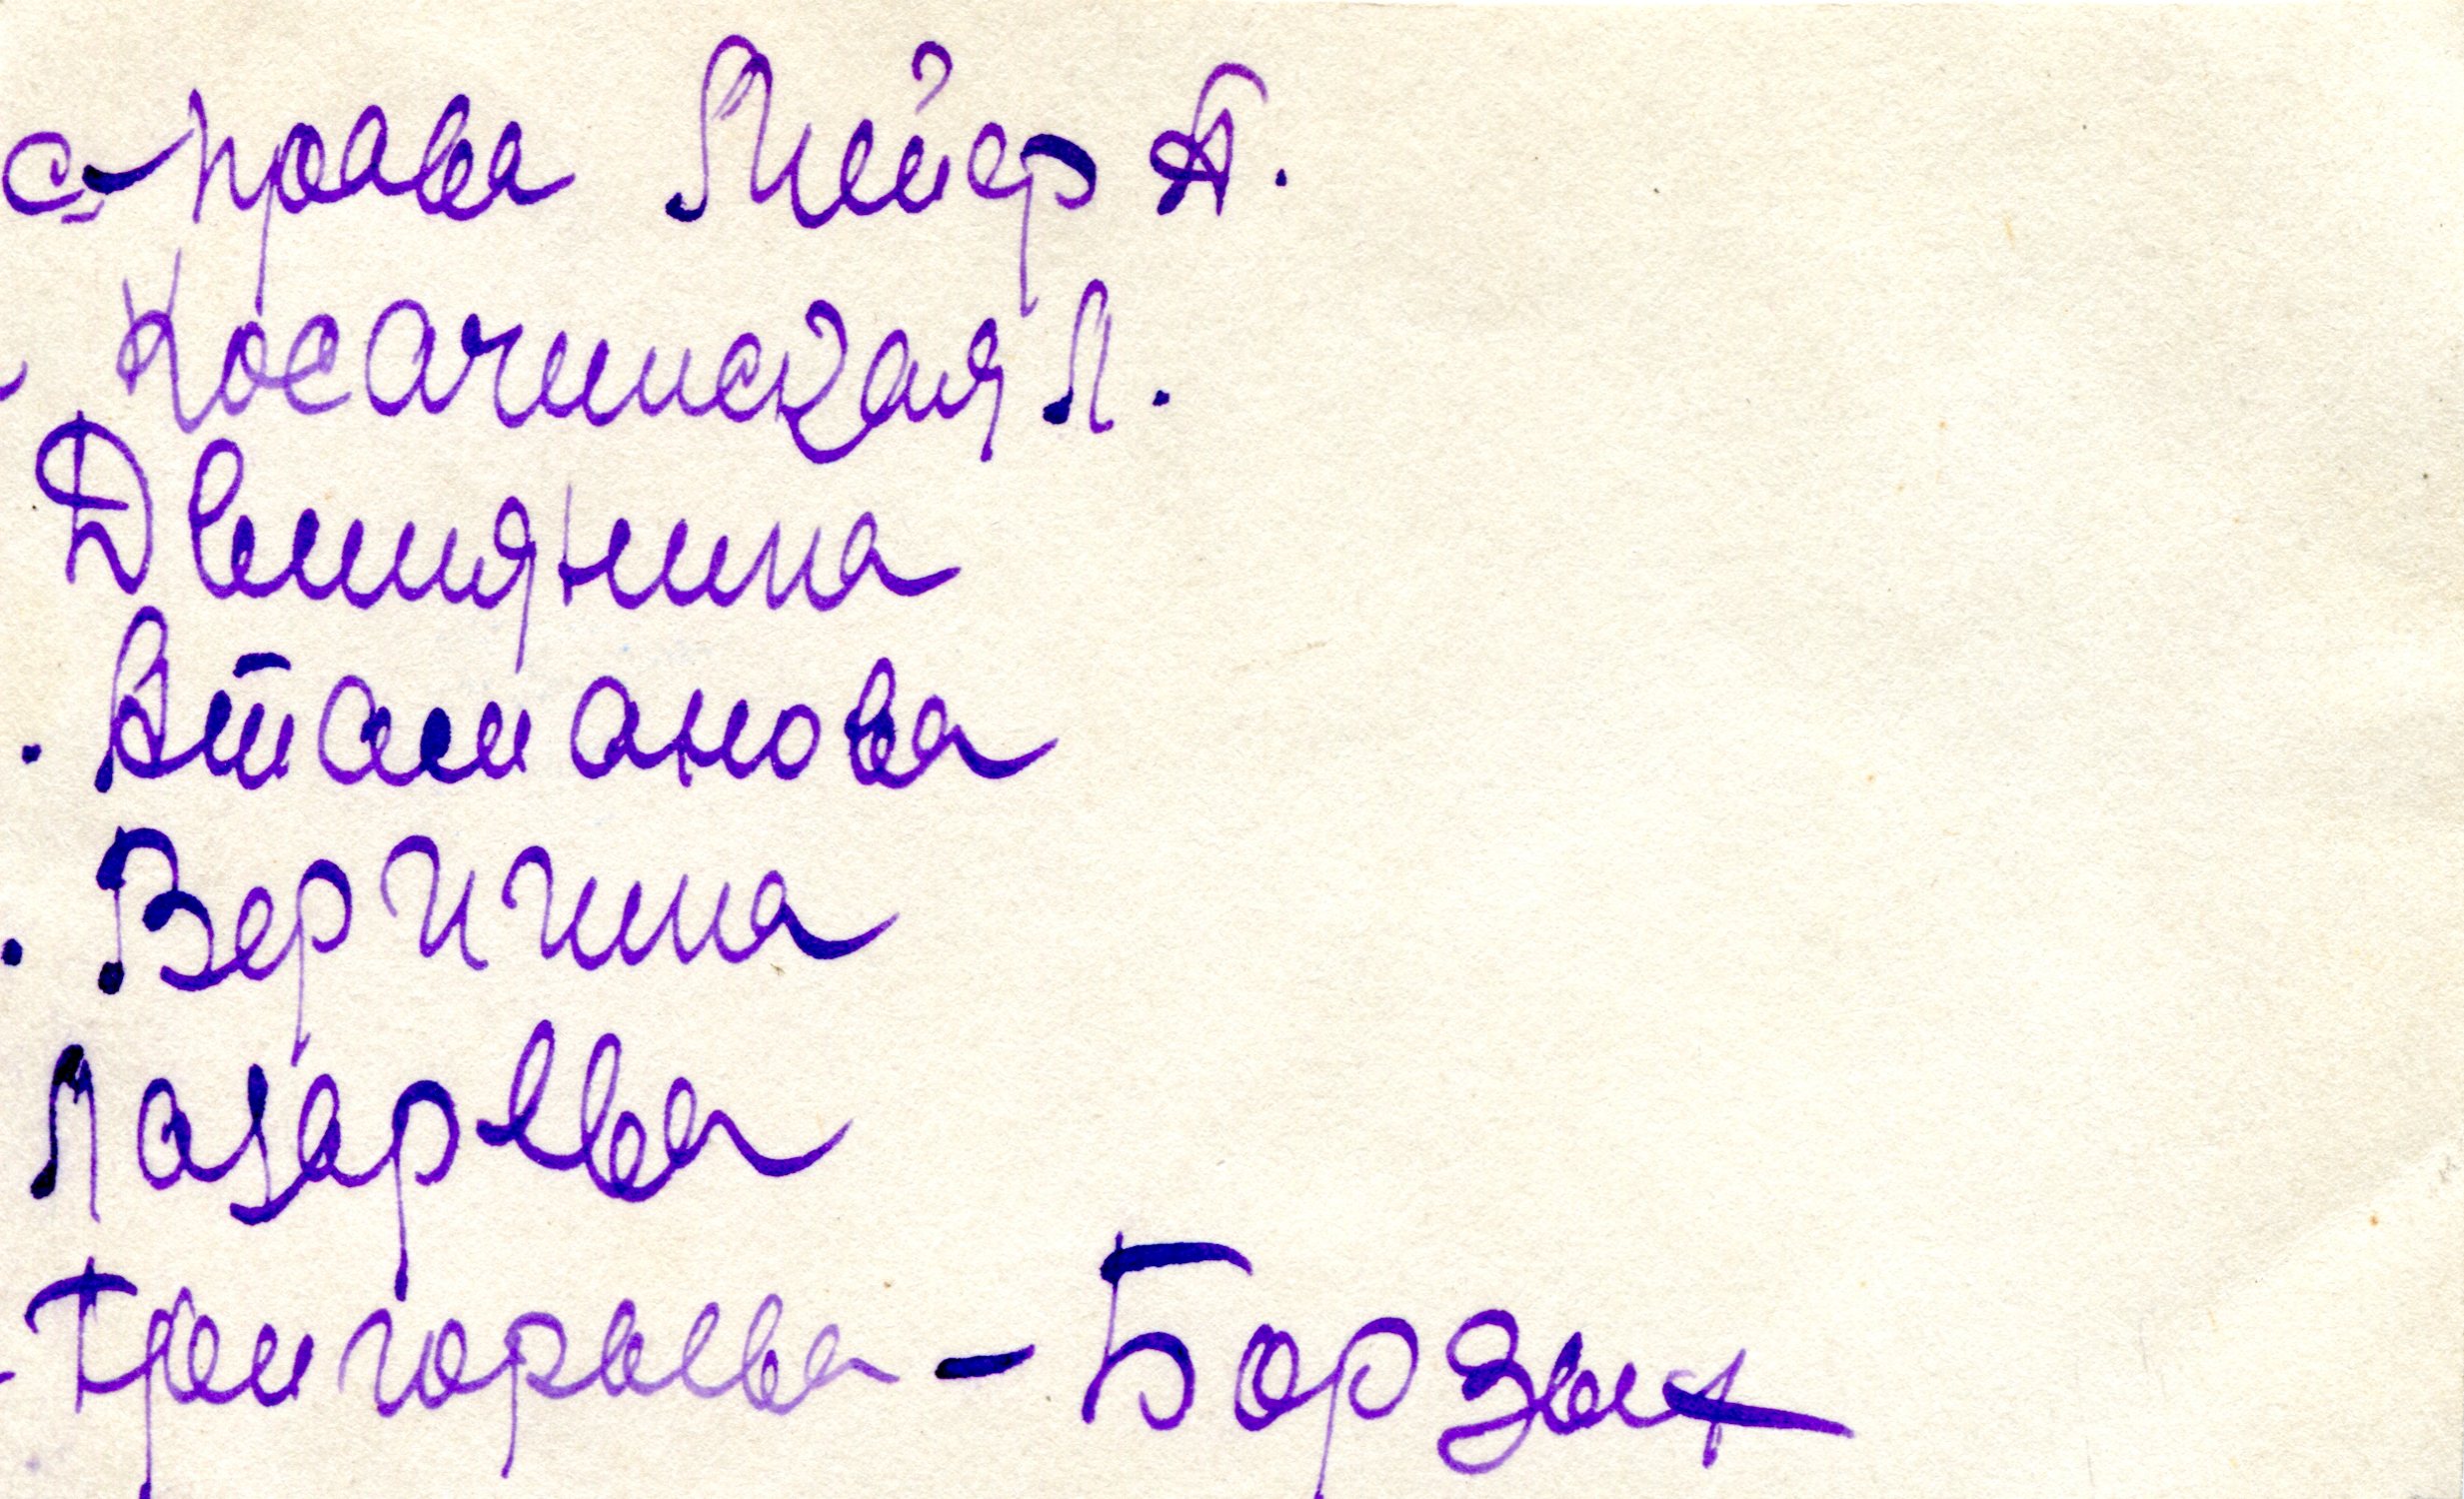 справа Мейер А.
Косачинская Л.
Двинянина
Атаманова
Вергина
Лазарева
Григорьева - Борзых